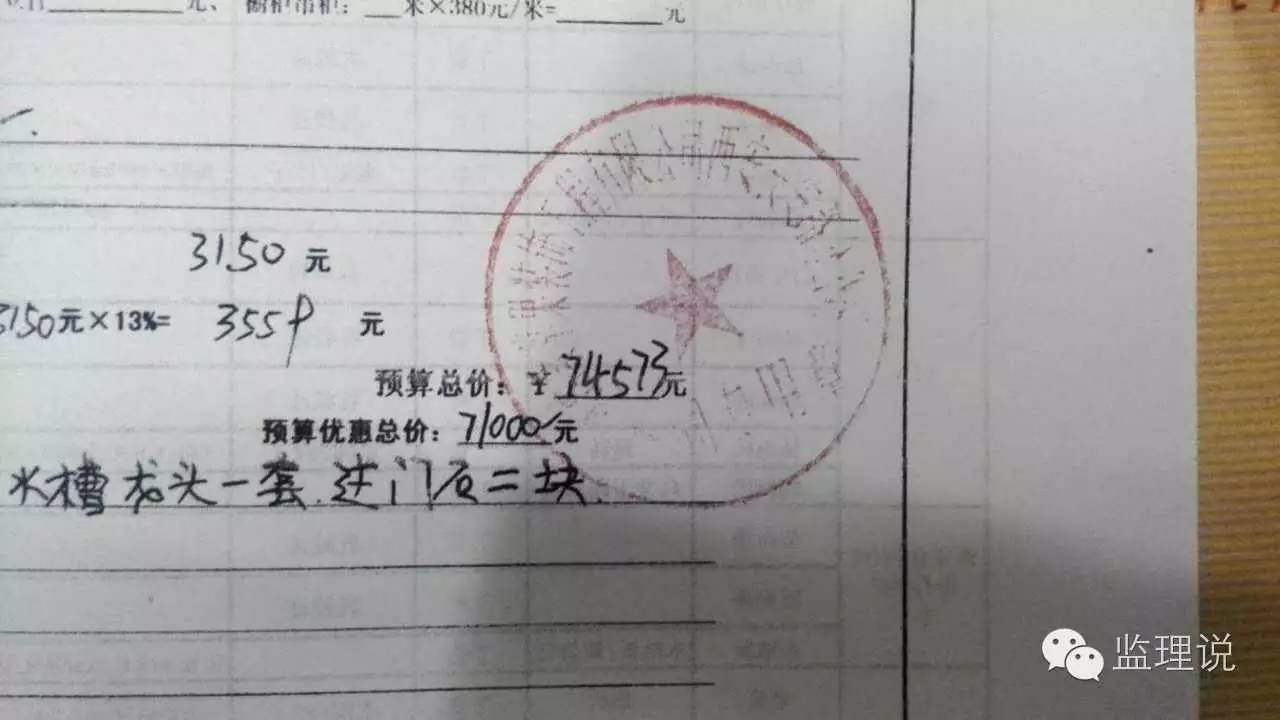 元、橱柜吊柜：___米×380元/米=________元
3150 元
3150元×13%= 3559 元
预算总价：￥74573元
预算优惠总价：71000元
水槽龙头一套.过门石二块.
装饰工程有限公司西安
监理说